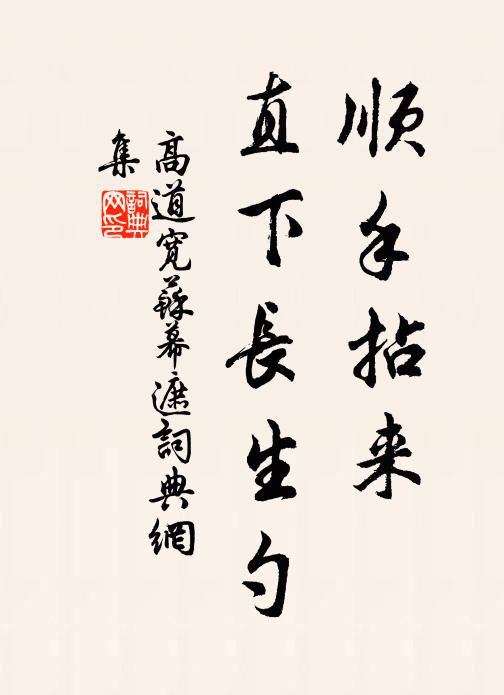 順手拈来
直下長生勺
高道寬蘇幕遮詞典網
集
詞典網印